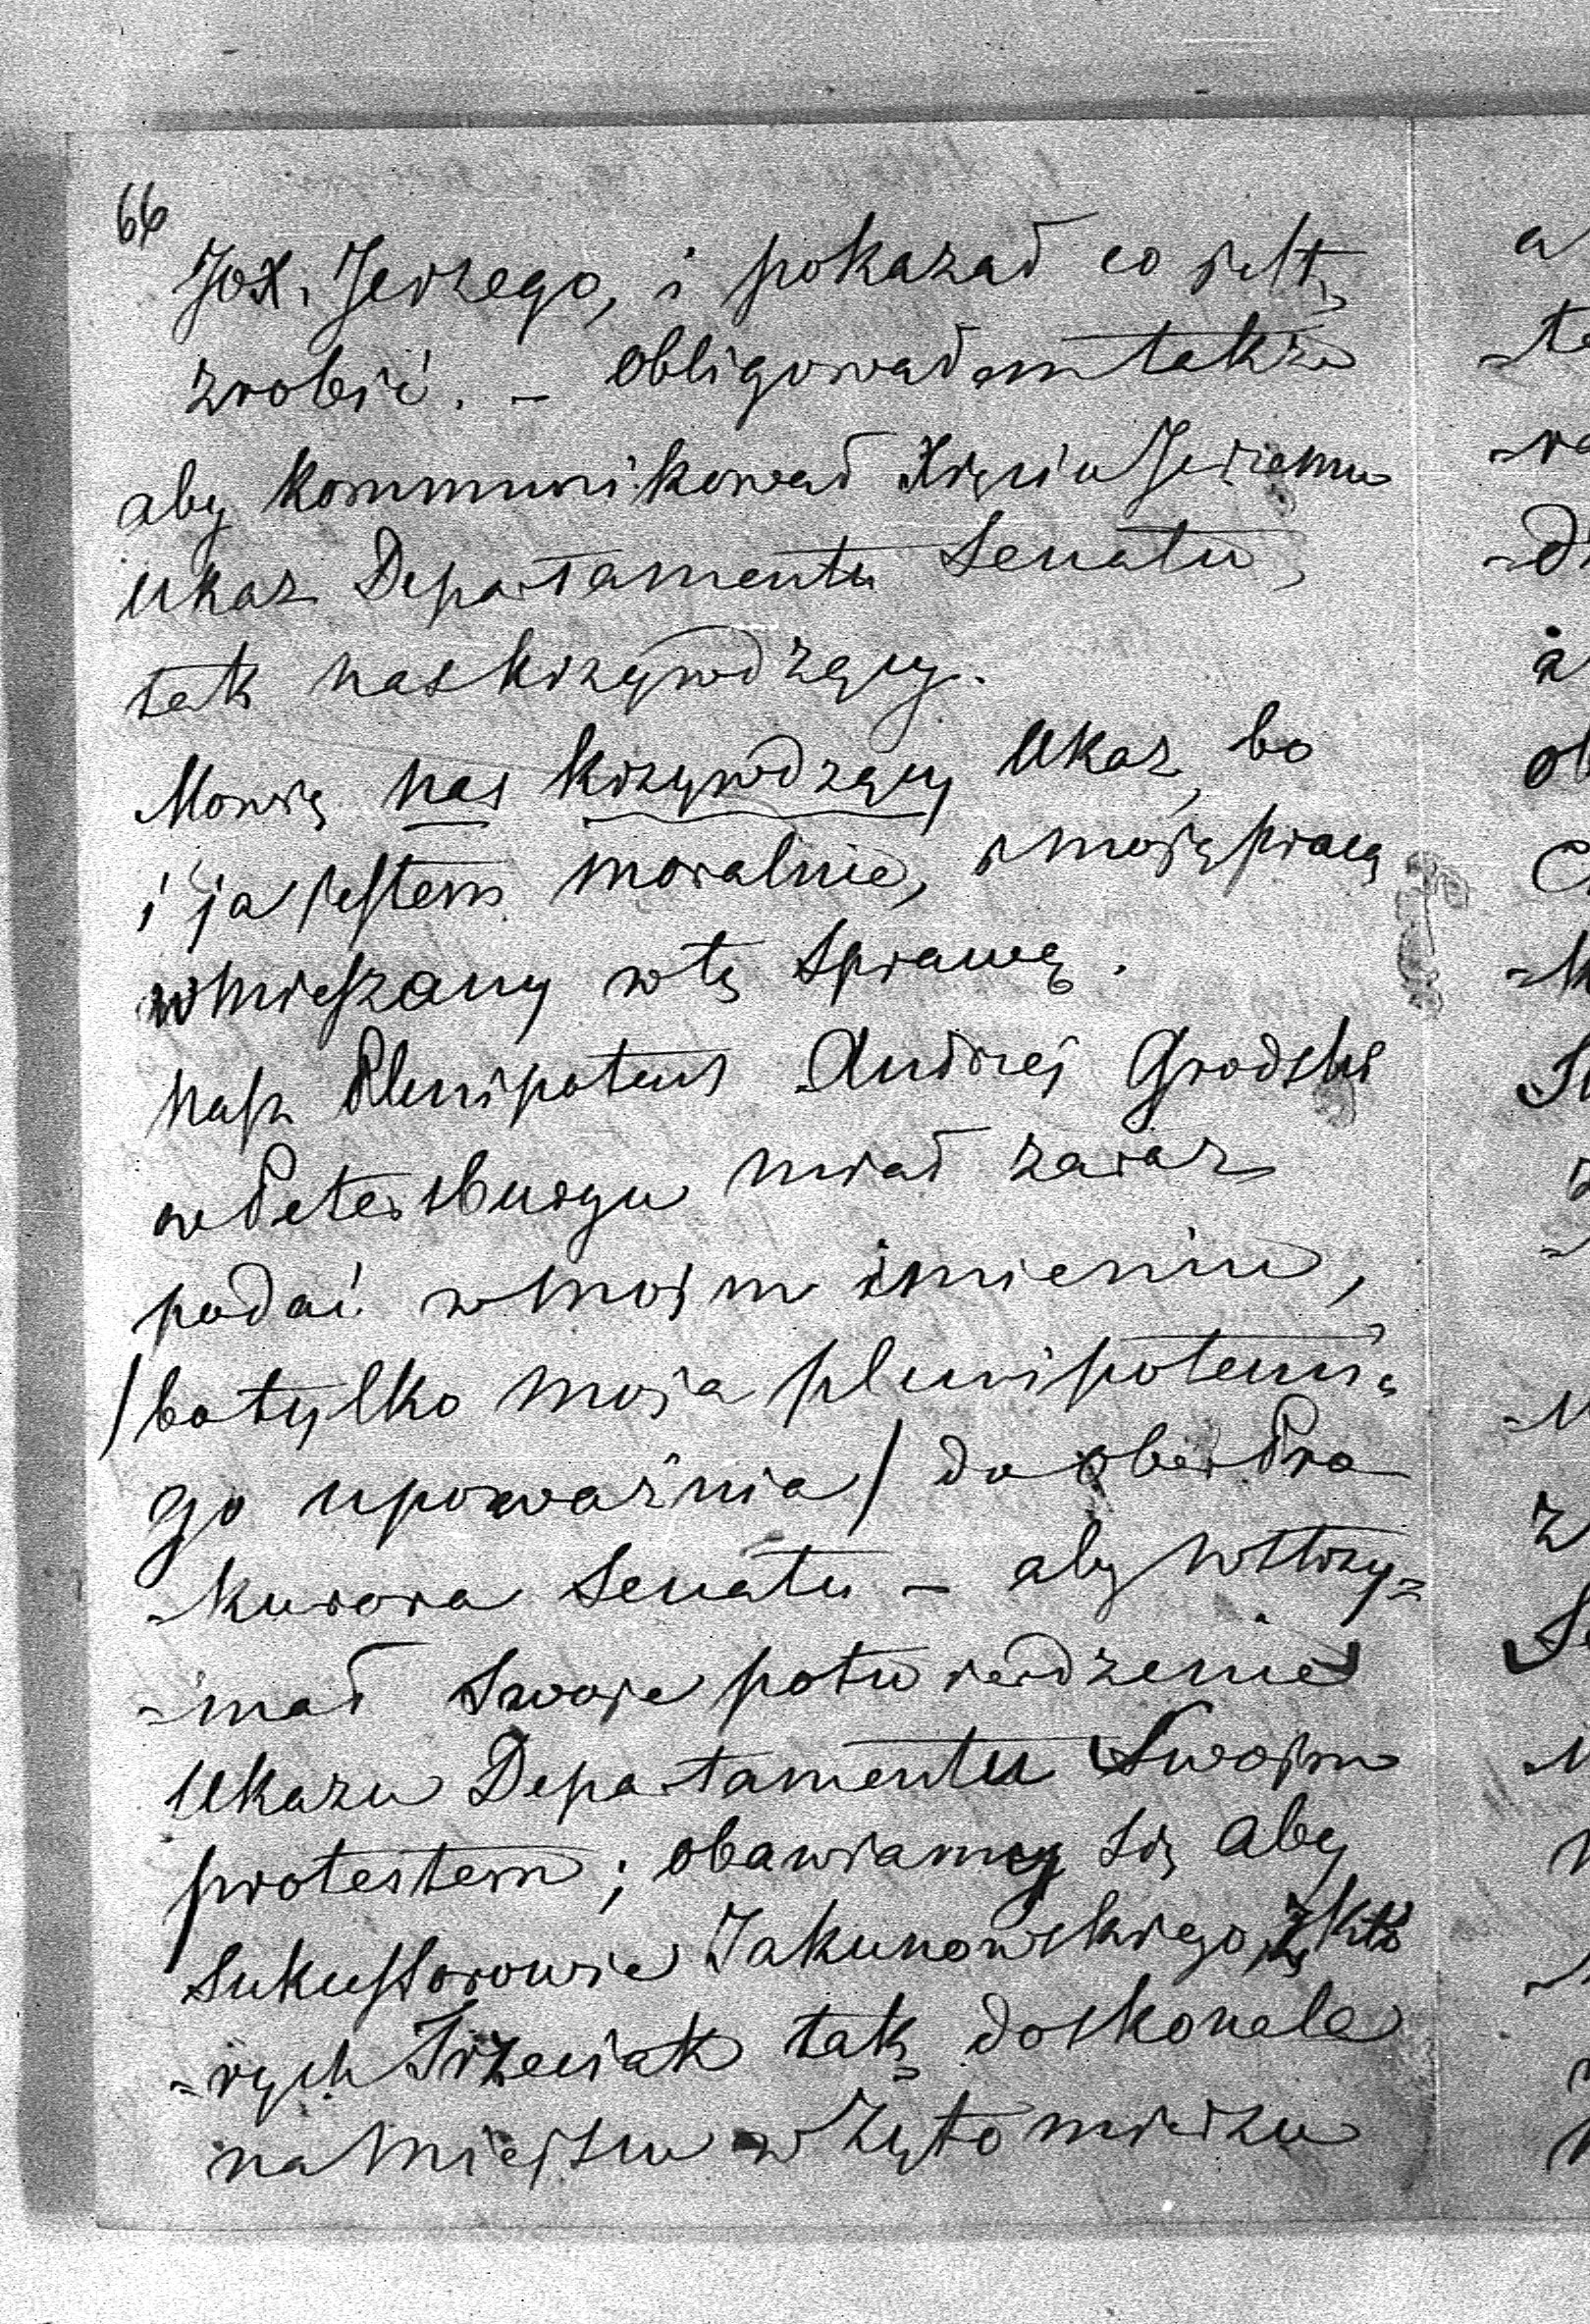 66
JOX. Jerzego, i pokazał co jest,
zrobić. – Obligowałem także
aby kommunikował Xięciu Jerzemu
Ukaz Departamentu Senatu,
tak nas krzywdzący.
Mowię nas krzywdzący Ukaz, bo
i ja jestem moralnie, i moją pracą
wmieszany w tę Sprawę.
nasz Plenipotent Andrzej Grodzki
w Petersburgu miał zaraz
podać w moim imieniu,
/bo tylko moja plenipotencia
go upoważnia/ do ober Pro
-kurora Senatu – aby wstrzy=
-mał Swoje potwierdzenie
Ukazu Departamentu Swoim
protestem; obawiamy się aby
Sukcessorowie Jakunowskiego, z któ
-rych Trzeciak tak doskonale
na miejscu w Żytomierzu